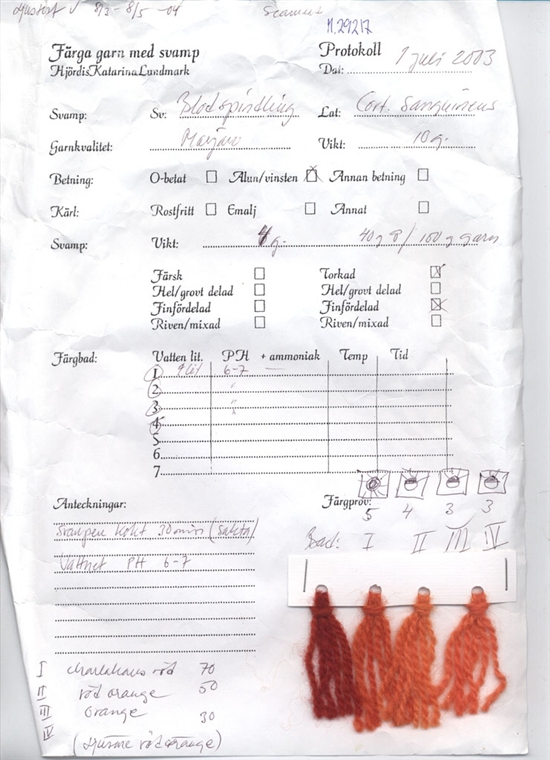 Ljustest V 8/3 - 8/5 -04 Scannat
M.29217
Färga garn med svamp Protokoll
Hjördis Katarina Lundmark Dat: 1 juli 2003
Svamp: Sv: Blodspindling Lat: Cort. Sanguineus
Garnkvalitet: Vikt: 10 g.
Betning: O-betat Alun/vinsten Annan betning
Kärl: Rostfritt Emalj Annat
Svamp: Vikt: 4 g. 40 g /100 g garn
Färsk Torkad
Hel/grovt delad Hel/grovt delad
Finfördelad Finfördelad
Riven/mixad Riven/mixad
Färgbad: Vatten lit. PH + ammoniak Temp Tid
1 6-7 —
2 "
3 "
4 "
5
6
7
Anteckningar: Färgprov:
5 4 3 3
Svampen kokt 30 min (Sakta)
Bad: I II III IV
Vattnet PH 6-7
I röd 70
II röd orange 50
III Orange 30
IV (Ljusare röd orange)